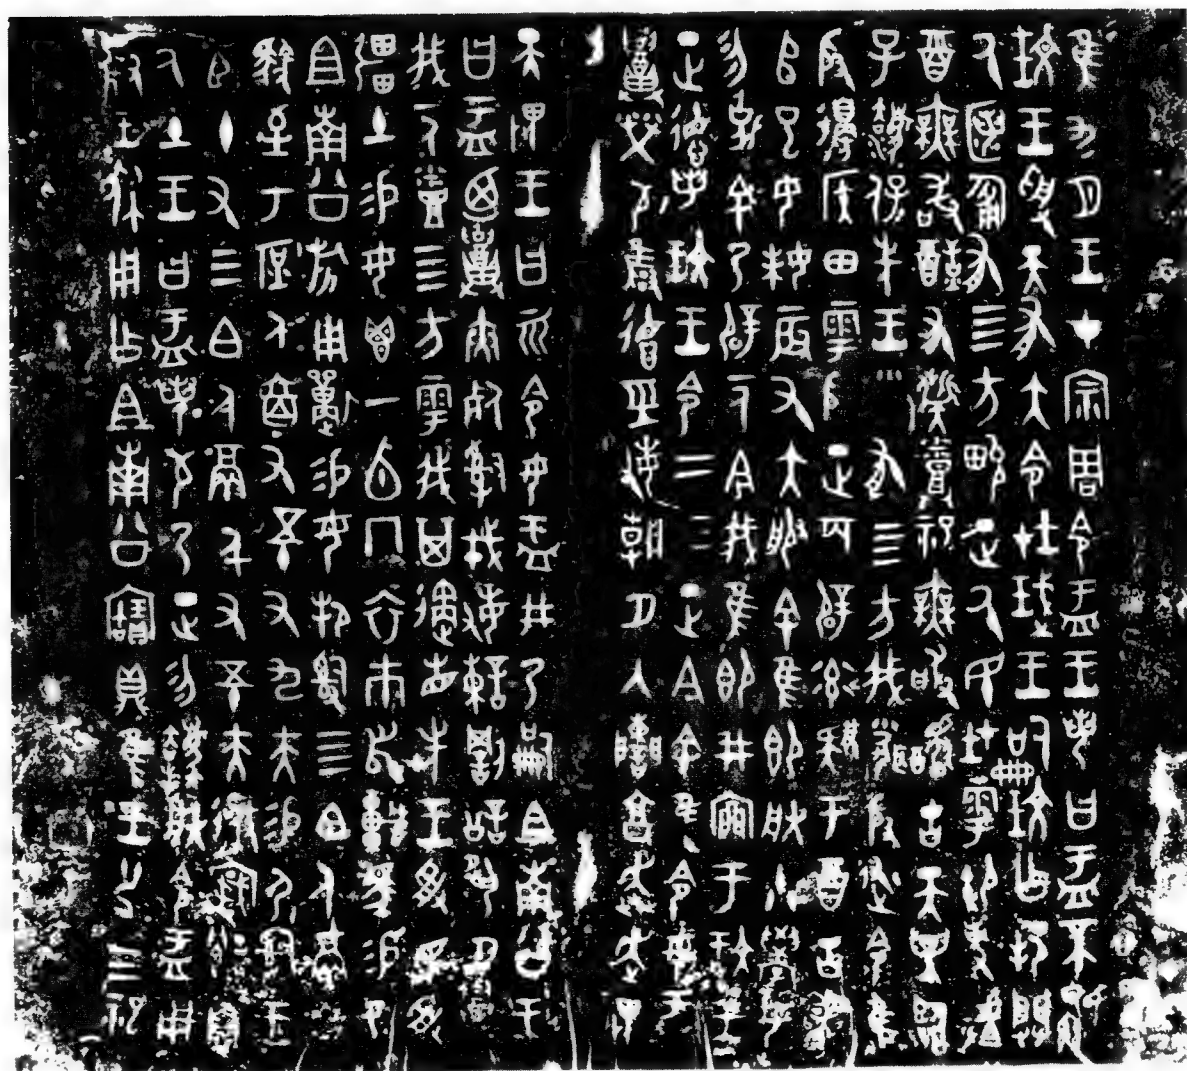 隹九月王才宗周令盂王若曰盂不顯
玟王受天有大令在珷王嗣玟乍邦闢
厥匿匍有四方畯正厥民在雩御事䖒
酉無敢酖有髭蒸祀無敢擾古天異臨
子灋保先王有四方我聞殷述令隹
殷邊侯田雩殷正百辟率肄于酉古喪
師已女妹辰又大服余隹即朕小學女
勿剋余乃辟一人今我隹即井廩于玟王
正德若玟王令二三正今余隹令女盂
召榮敬雍德經敏朝夕入諫享奔走畏
天畏王曰而令女盂井乃嗣且南公王
曰盂乃召夾死司戎敏諫罰訟夙夕召
我一人烝四方雩我其遹省先王受民受
疆土易女鬯一卣冂衣巿舄車馬易乃
且南公旂用狩易女邦司四白人鬲自
馭至于庶人六百又五十又九夫易尸司王
臣十又三白人鬲千又五十夫遷自
厥土王曰盂若敬乃正勿灋朕令盂用
對王休用乍且南公寶鼎隹王廿又三祀